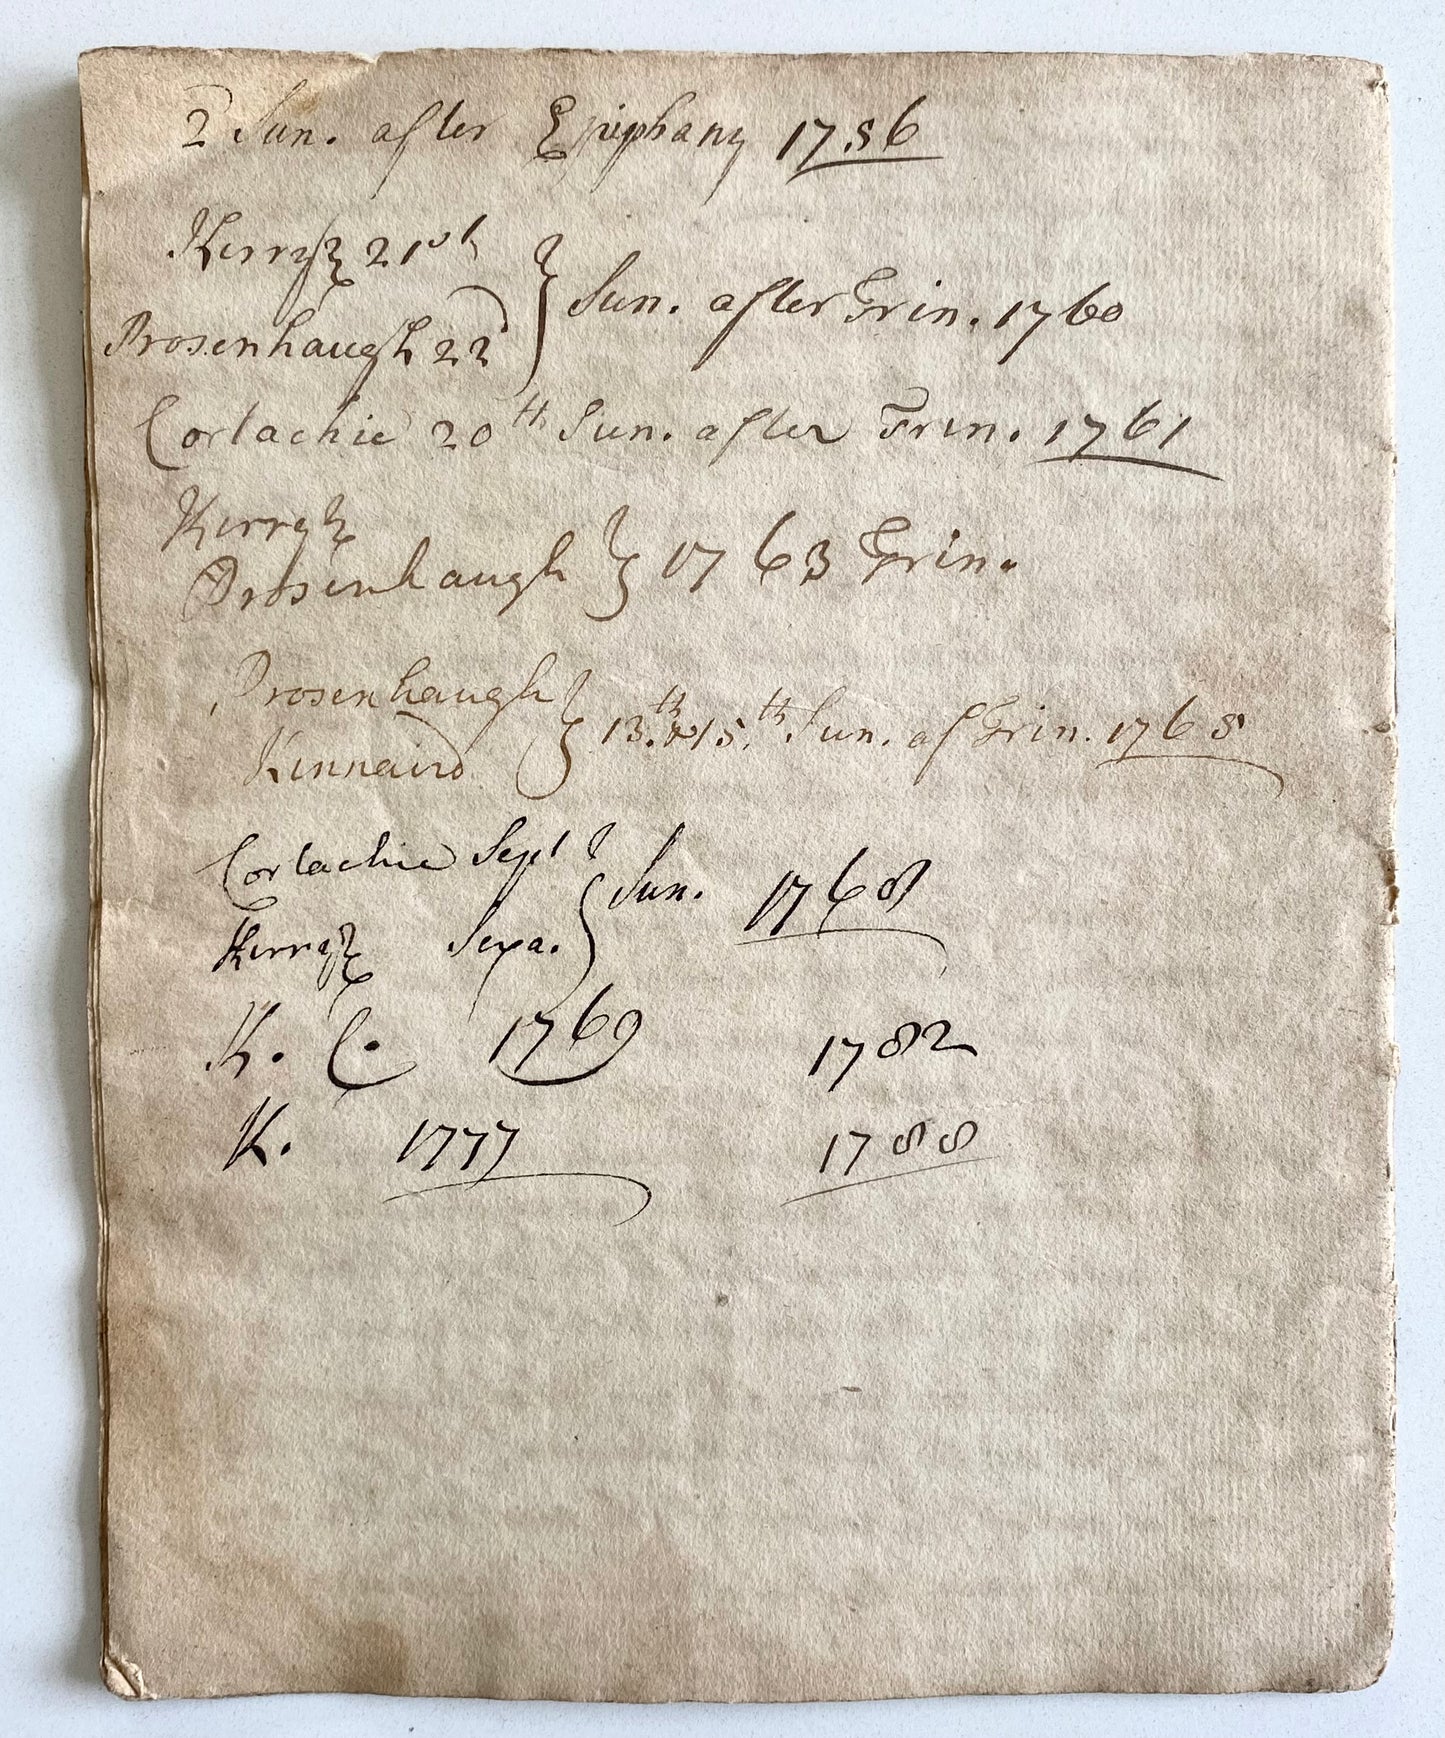 2d Sun. after Epiphany 1756
Kerry 21st
Prosenhaugh 22d } Sun. after Trin. 1760
Cortachie 20th Sun. after Trin. 1761
Kerry
Prosenhaugh } 1763 Trin.
Prosenhaugh
Kinnaird } 13.th & 15.th Sun. af Trin. 1765
Cortachie Sept
Kerry Sexa. } Sun. 1768
K. C. 1769 1782
K. 1777 1788